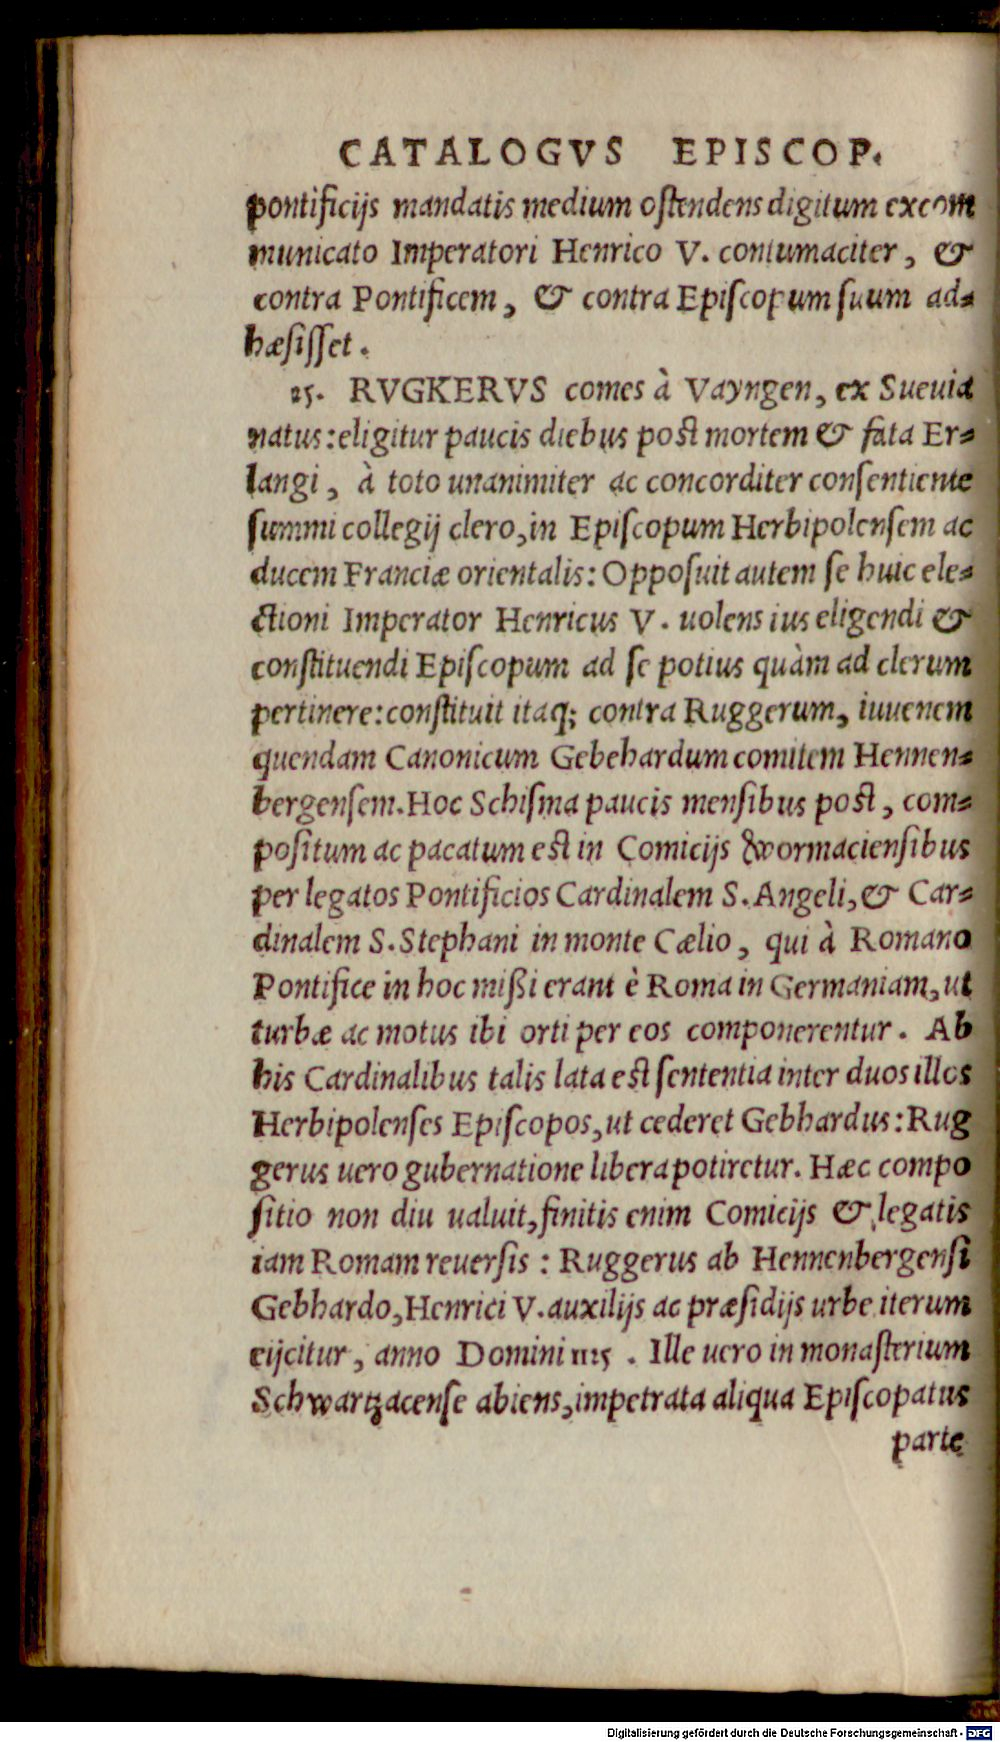 CATALOGVS EPISCOP.
pontificijs mandatis medium ostendens digitum excom
municato Imperatori Henrico V. contumaciter, &
contra Pontificem, & contra Episcopum suum ad-
hæsisset.
25. RVGKERVS comes à Vayngen, ex Sueuia
natus: eligitur paucis diebus post mortem & fata Er-
langi, à toto unanimiter ac concorditer consentiente
summi collegij clero, in Episcopum Herbipolensem ac
ducem Franciæ orientalis: Opposuit autem se huic ele-
ctioni Imperator Henricus V. uolens ius eligendi &
constituendi Episcopum ad se potius quàm ad clerum
pertinere: constituit itaq; contra Ruggerum, iuuenem
quendam Canonicum Gebehardum comitem Hennen-
bergensem. Hoc Schisma paucis mensibus post, com-
positum ac pacatum est in Comicijs Wormaciensibus
per legatos Pontificios Cardinalem S. Angeli, & Car-
dinalem S. Stephani in monte Cælio, qui à Romano
Pontifice in hoc mißi erant è Roma in Germaniam, ut
turbæ ac motus ibi orti per eos componerentur. Ab
his Cardinalibus talis lata est sententia inter duos illos
Herbipolenses Episcopos, ut cederet Gebhardus: Rug
gerus uero gubernatione libera potiretur. Hæc compo
sitio non diu ualuit, finitis enim Comicijs & legatis
iam Romam reuersis: Ruggerus ab Hennenbergensi
Gebhardo, Henrici V. auxilijs ac præsidijs urbe iterum
eijcitur, anno Domini 1125. Ille uero in monasterium
Schwartzacense abiens, impetrata aliqua Episcopatus
parte
Digitalisierung gefördert durch die Deutsche Forschungsgemeinschaft - DFG